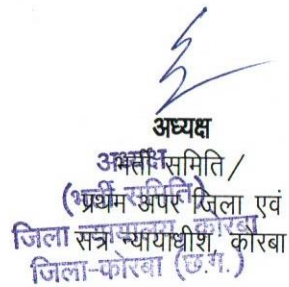 अध्यक्ष
भर्ती समिति /
प्रथम अपर जिला एवं
सत्र न्यायाधीश, कोरबा
अध्यक्ष
(भर्ती समिति)
जिला न्यायालय कोरबा
जिला-कोरबा (छ.ग.)